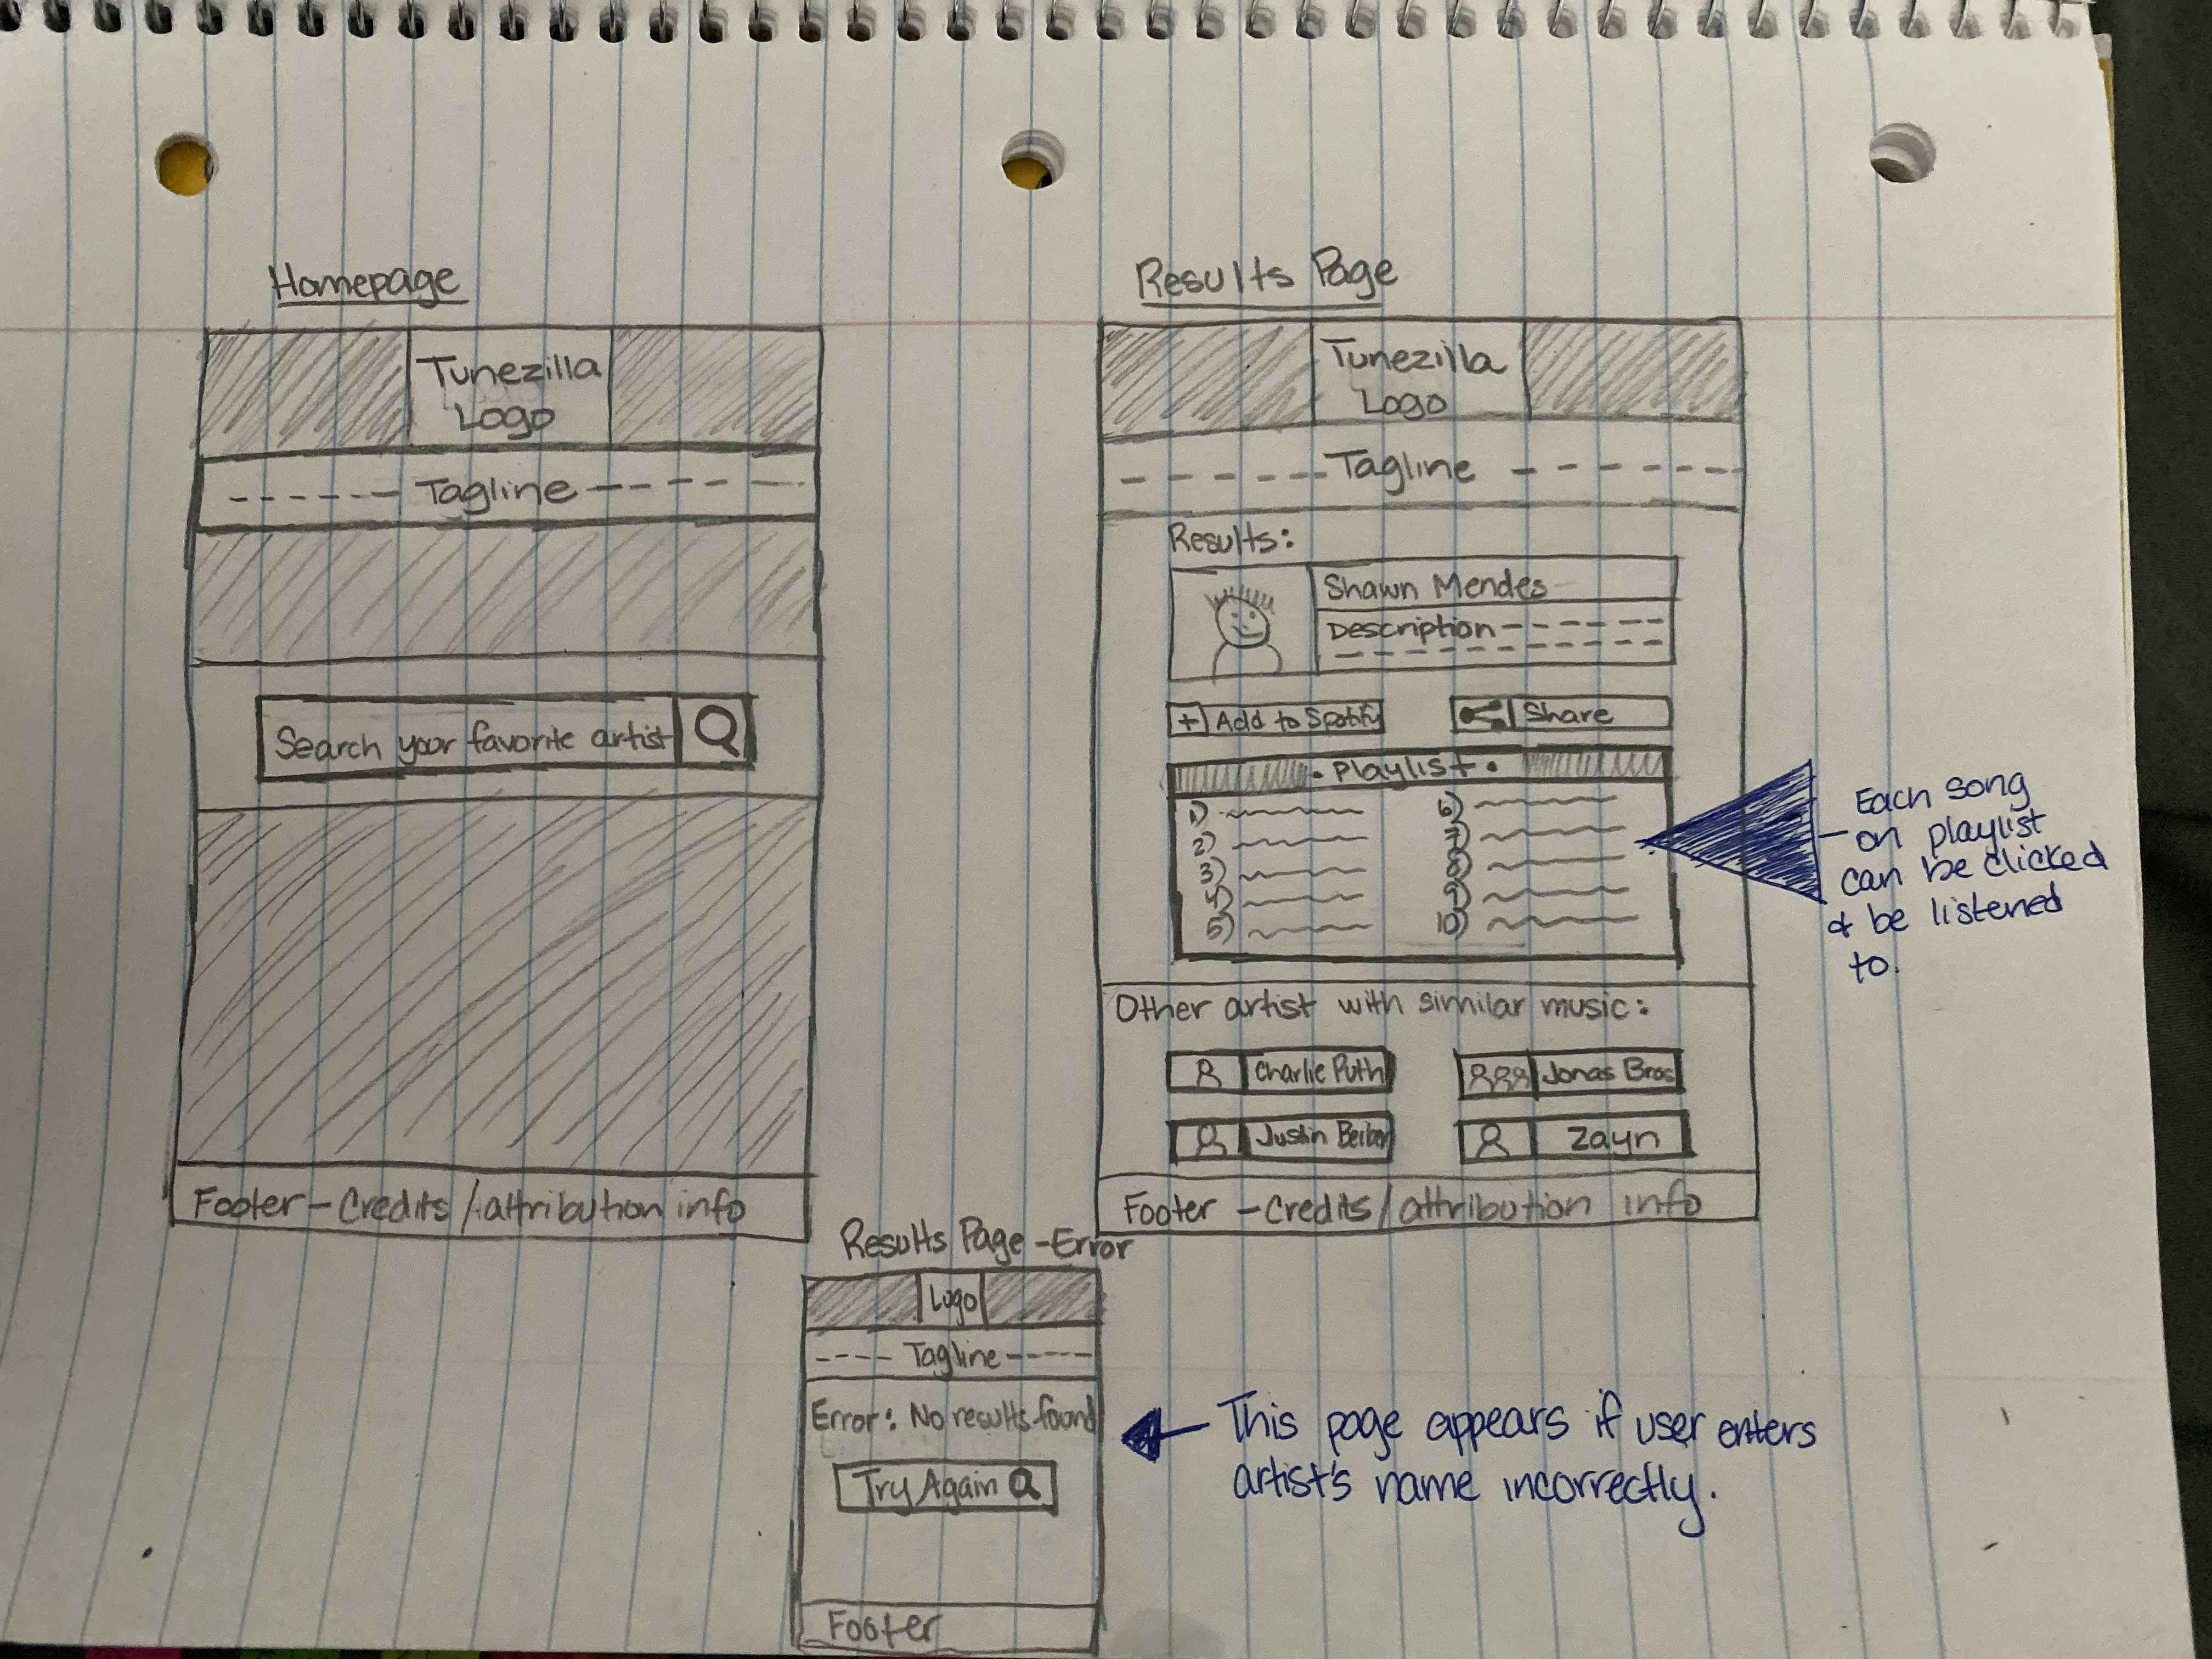 Homepage
Tunezilla
Logo
Tagline
Search your favorite artist
Footer - Credits/attribution info
Results Page
Tunezilla
Logo
Tagline
Results:
Shawn Mendes
Description
+ Add to Spotify
Share
• Playlist •
1)
2)
3)
4)
5)
6)
7)
8)
9)
10)
Each song
on playlist
can be clicked
& be listened
to.
Other artist with similar music:
Charlie Puth
Jonas Bros
Justin Beiber
Zayn
Footer - Credits/attribution info
Results Page - Error
Logo
Tagline
Error: No results found
Try Again
Footer
This page appears if user enters
artist's name incorrectly.